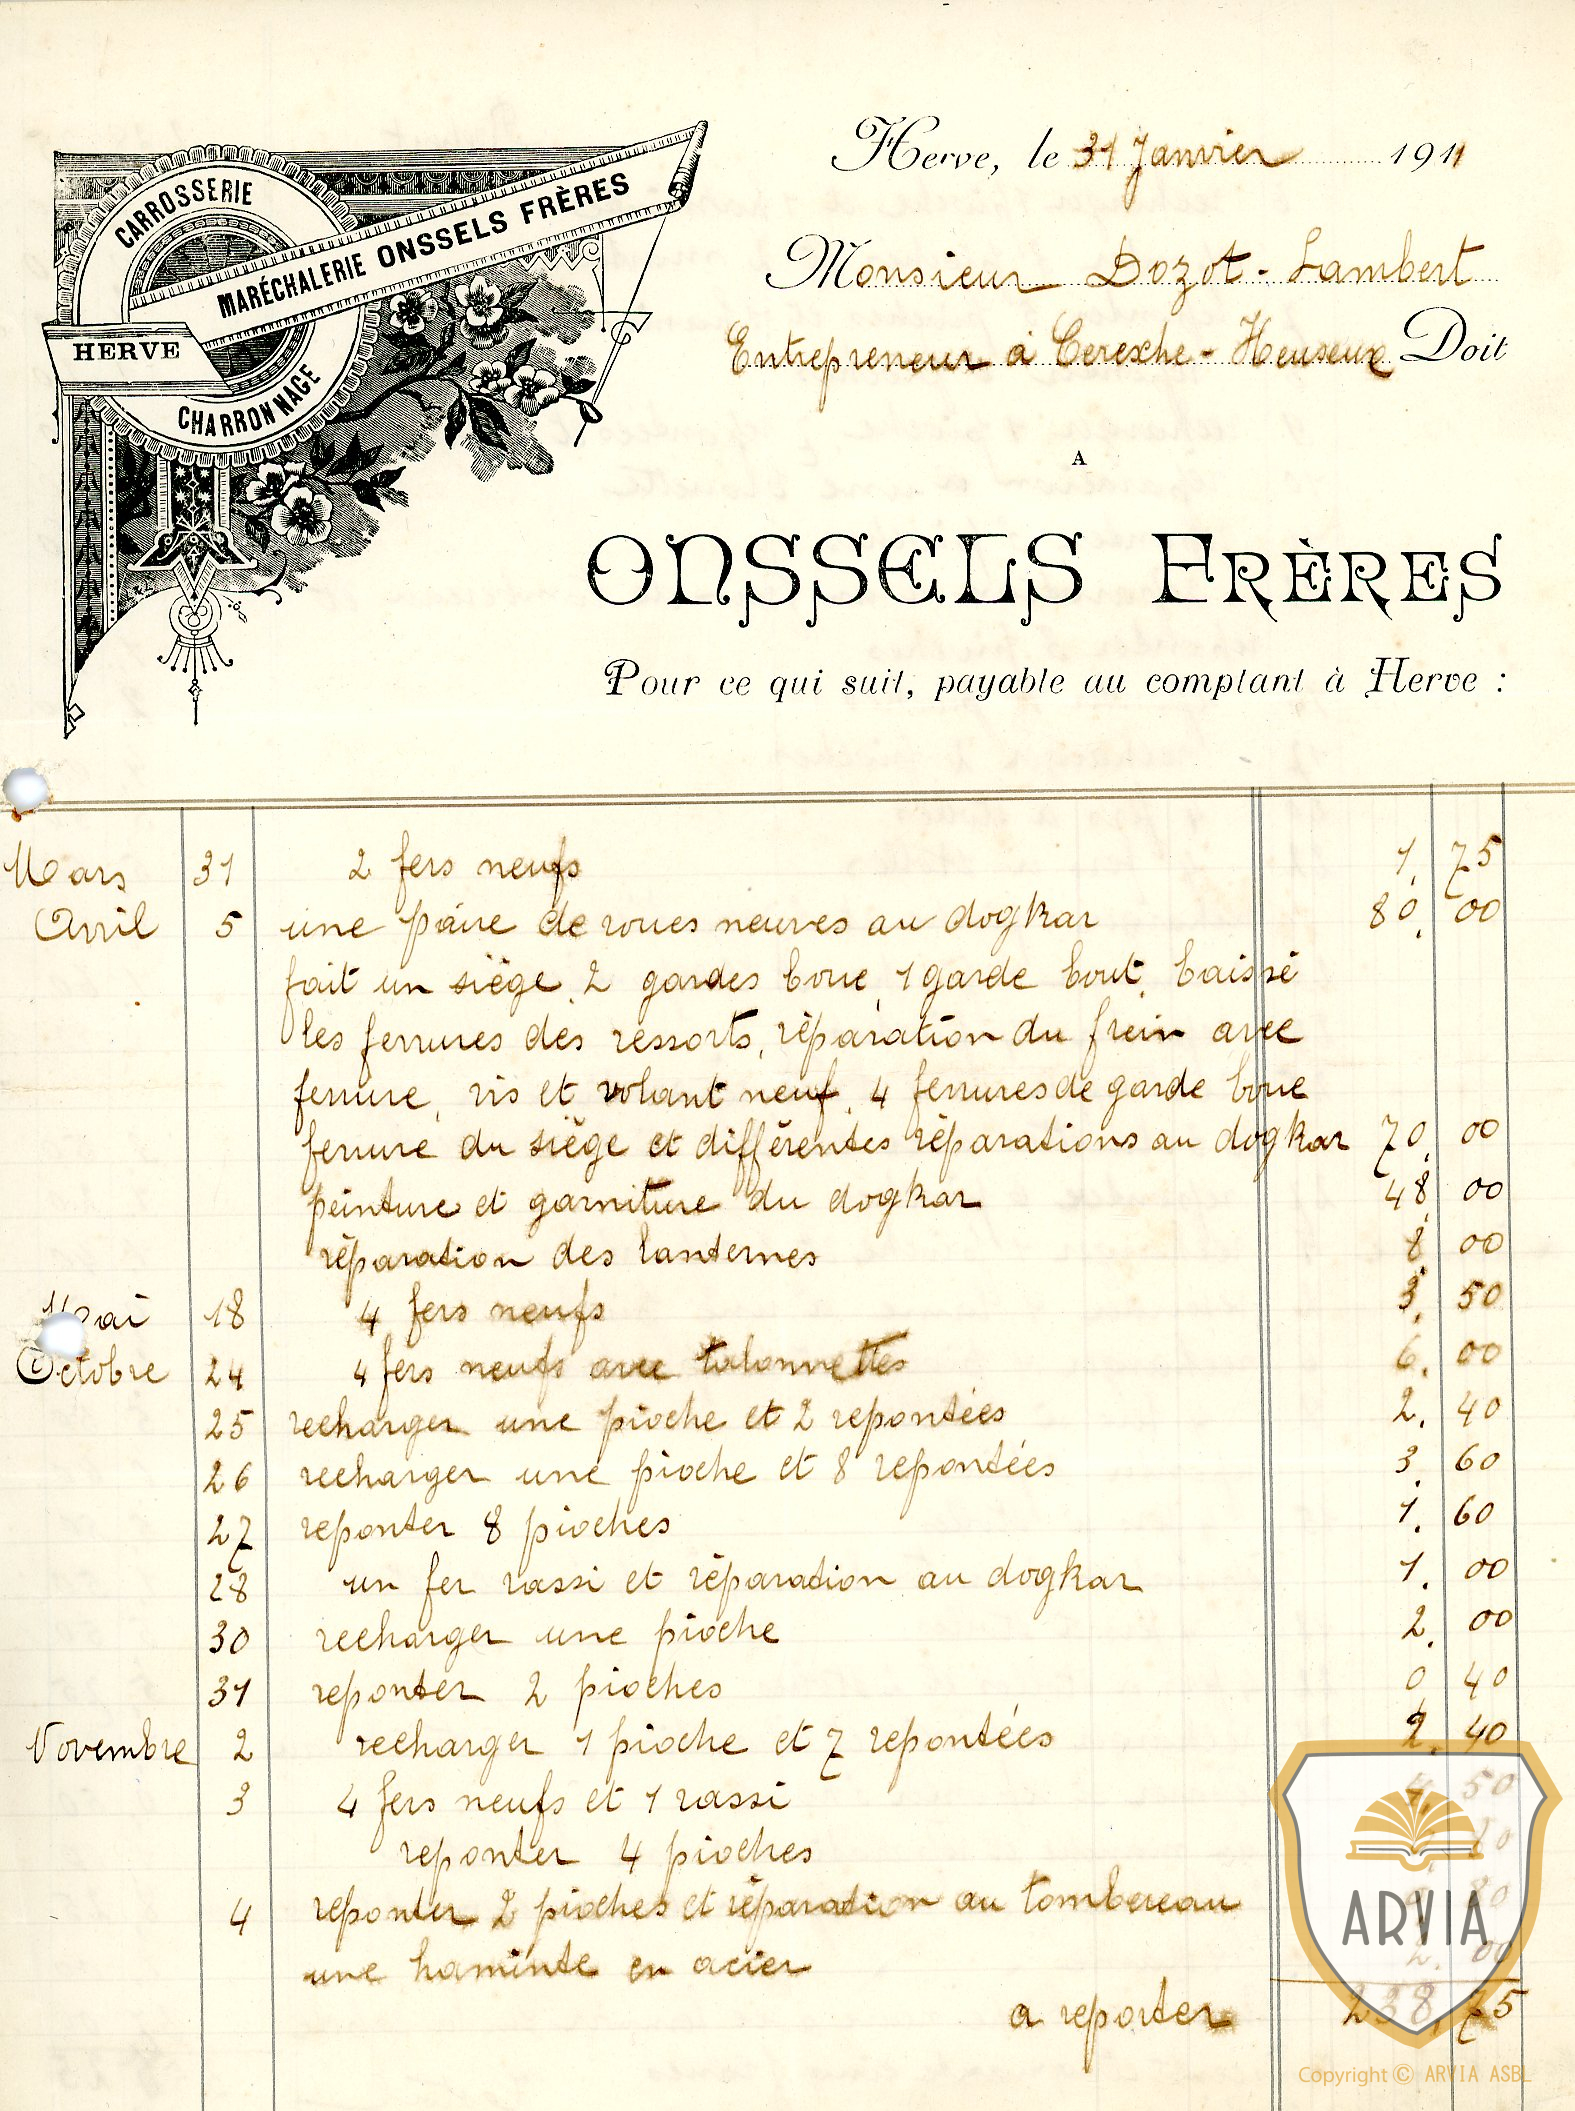 CARROSSERIE
MARÉCHALERIE ONSSELS FRÈRES
HERVE
CHARRONNAGE
Herve, le 31 Janvier 1911
Monsieur Dozot-Lambert
Entrepreneur à Cerexhe-Heuseux Doit
A
ONSSELS FRÈRES
Pour ce qui suit, payable au comptant à Herve :
Mars 31 2 fers neufs 1,75
Avril 5 une paire de roues neuves au dogkar 80,00
fait un siège, 2 gardes boue, 1 garde bout, baissé
les ferrures des ressorts, réparation du frein avec
ferrure, vis et volant neuf, 4 ferrures de garde boue
ferrure du siège et différentes réparations au dogkar 70,00
peinture et garniture du dogkar 48,00
réparation des lanternes 8,00
Mai 18 4 fers neufs 3,50
Octobre 24 4 fers neufs avec talonnettes 6,00
25 recharger une pioche et 2 repontées 2,40
26 recharger une pioche et 8 repontées 3,60
27 reponter 8 pioches 1,60
28 un fer rassi et réparation au dogkar 1,00
30 recharger une pioche 2,00
31 reponter 2 pioches 0,40
Novembre 2 recharger 1 pioche et 7 repontées 2,40
3 4 fers neufs et 1 rassi 4,50
reponter 4 pioches 80
4 reponter 2 pioches et réparation au tombereau 80
une haminte en acier 2,00
a reporter 238,75
ARVIA
Copyright © ARVIA ASBL